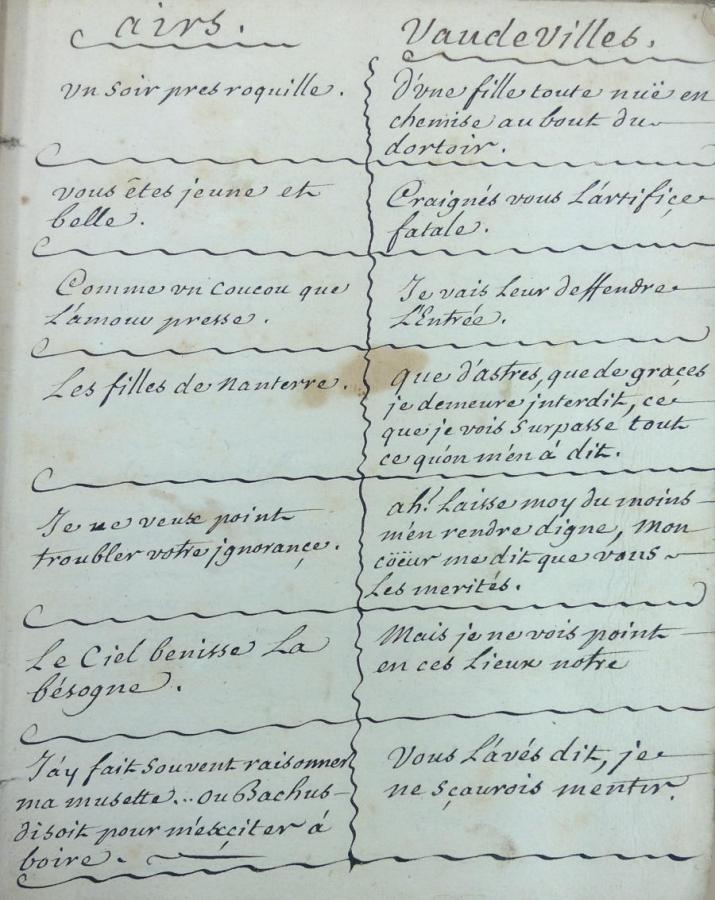 airs.
Vaudevilles.
Vn Soir pres roquille.
D'vne fille toute nuë en
chemise au bout du
dortoir.
vous êtes jeune et
belle.
Craignés vous L'artifiçe
fatale.
Comme vn Coucou que
L'amour presse.
Je vais Leur deffendre
L'Entrée.
Les filles de nanterre.
que d'astres, que de graçes
je demeure jnterdit, ce
que je vois Surpasse tout
ce qu'on m'en à dit.
Je ne veux point
troubler votre jgnorançe.
ah! Laisse moy du moins
m'en rendre digne, Mon
cöeur me dit que vous
Les merités.
Le Ciel benisse La
bésogne.
Mais je ne vois point
en ces Lieux notre
J'ay fait Souvent raisonner
ma musette... ou Bachus
disoit pour m'exçiter á
boire.
Vous L'avés dit, je
ne sçaurois mentir.